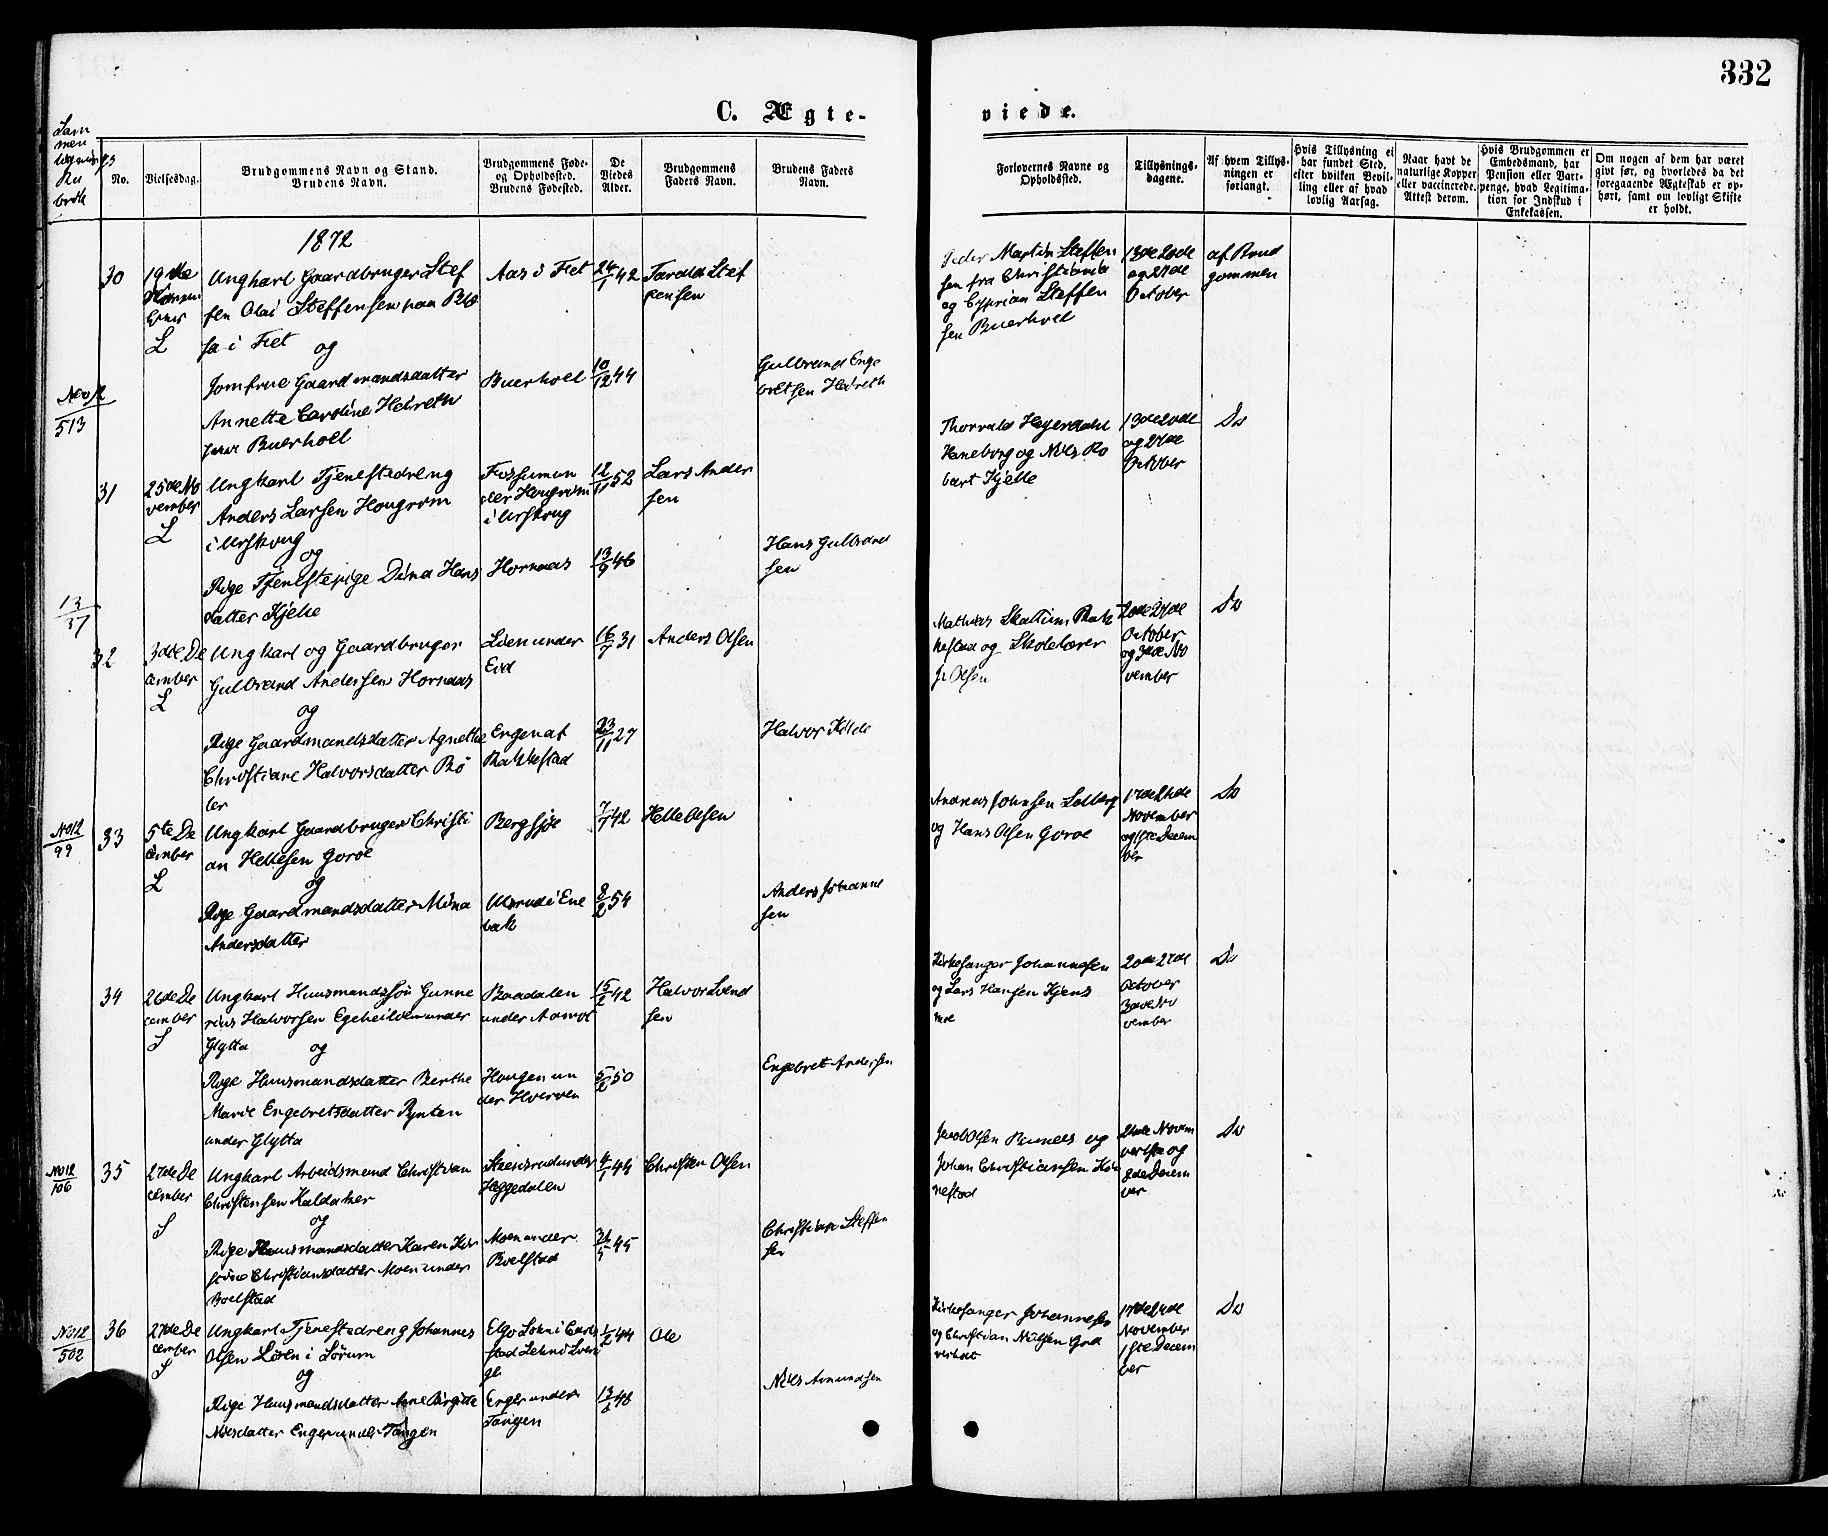 332
C. Ægte-
viede.
Sam
men
No.
Vielsesdag.
Brudgommens Navn og Stand.
Brudens Navn.
Brudgommens Føde-
og Opholdssted.
Brudens Fødested.
De
Viedes
Alder.
Brudgommens
Faders Navn.
Brudens Faders
Navn.
Forlovernes Navne og
Opholdssted.
Tillysnings-
dagene.
Af hvem Tillys-
ningen er
forlangt.
Hvis Tillysning ei
har fundet Sted,
efter hvilken Bevil-
ling eller af hvad
lovlig Aarsag.
Naar havt de
naturlige Kopper
eller vaccinerede.
Attest derom.
Hvis Brudgommen er
Embedsmand, har
Pension eller Vart-
penge, hvad Legitima-
tion for Indskud i
Enkekassen.
Om nogen af dem har været
givt før, og hvorledes da det
foregaaende Ægteskab er op-
hørt, samt om lovligt Skifte
er holdt.
1872
30
19de
L
Ungkarl Gaardbruger Stef
fen Olai Steffensen paa
i Fet
og
Jomfrue Gaardmandsdatter
Annette Caroline
Buerhoel
Aas i Fet
Buerhoel
24/1 42
10/12 44
Tarald Stef
fensen
Gulbrand Enge
bretsen
Peder Martin Steffen
sen fra Christiania
og Cyprian Steffen
sen Buerhoel
13de 20de
og 27de
October
af Brud
gommen
513
31
25de No
vember
L
Ungkarl Tjenestedreng
Anders Larsen Hougrim
i Urskoug
og
Pige Tjenestepige Dina Hans
datter Kjelle
Fossumun
der Hougrim
i Urskoug
Hornaas
12/11 52
13/9 46
Lars Ander
sen
Hans Gulbrand
sen
Thorvald Heyerdahl
Haneborg og Niels Ro
bart Kjelle
13de 20de
og 27de
October
Do
13/37
32
3die De
cember
L
Ungkarl og Gaardbruger
Gulbrand Andersen Hornaas
og
Pige Gaardmandsdatter Agnethe
Christiane Halvorsdatter Bø
ler
Lien under
Eid
Engen af
Bakkestad
16/7 31
23/11 27
Anders Olsen
Halvor Kilde
Mathias Skattum Bak
kestad og Skolelærer
Olsen
20de 27de
October
og 3die No
vember
Do
No 12/99
33
5te De
cember
L
Ungkarl Gaardbruger Christi
an Hellesen Goroe
og
Pige Gaardmandsdatter Mina
Andersdatter
Bergsjø
i Ene
bak
7/7 42
8/2 54
Helle Olsen
Anders Johanne
sen
Andreas Johnsen Solberg
og Hans Olsen Goroe
17de 24de
November
og 1ste Decem
ber
Do
34
26de De
cember
S
Ungkarl Huusmandssøn Gunne
rius Halvorsen under
Glytta
og
Pige Huusmandsdatter Berthe
Marie Engebretsdatter
under Glytta
Baadalen
under
Hougen un
der Hverven
15/2 42
50
Halvor Svend
sen
Engebret Andersen
Kirkesanger Johannesen
og Lars Hansen Kjens
moe
20de 27de
October
3die No
vember
Do
No 12/106
35
27de De
cember
S
Ungkarl Arbeidsmand Christian
Christensen Kaldaker
og
Pige Huusmandsdatter Karen Kir
stine Christiansdatter Moen under
Boelstad
Steensrud under
Heggedalen
Moen under
Boelstad
4/1 44
45
Christen Olsen
Christian Steffen
sen
Jacob Olsen og
Johan Christiansen
nestad
24de Novem
ber 1ste og
8de Decem
ber
Do
No 12/502
36
27de De
cember
S
Ungkarl Tjenestedreng Johannes
Olsen Løren i Sørum
og
Pige Huusmandsdatter Anne Birgitte
Nilsdatter Enger under Tangen
i Carl
stad
Enger under
Tangen
1/2 44
48
Ole
Niels Amundsen
Kirkesanger Johannesen
og Christian Nilsen
17de 24de
November
1ste Decem
ber
Do